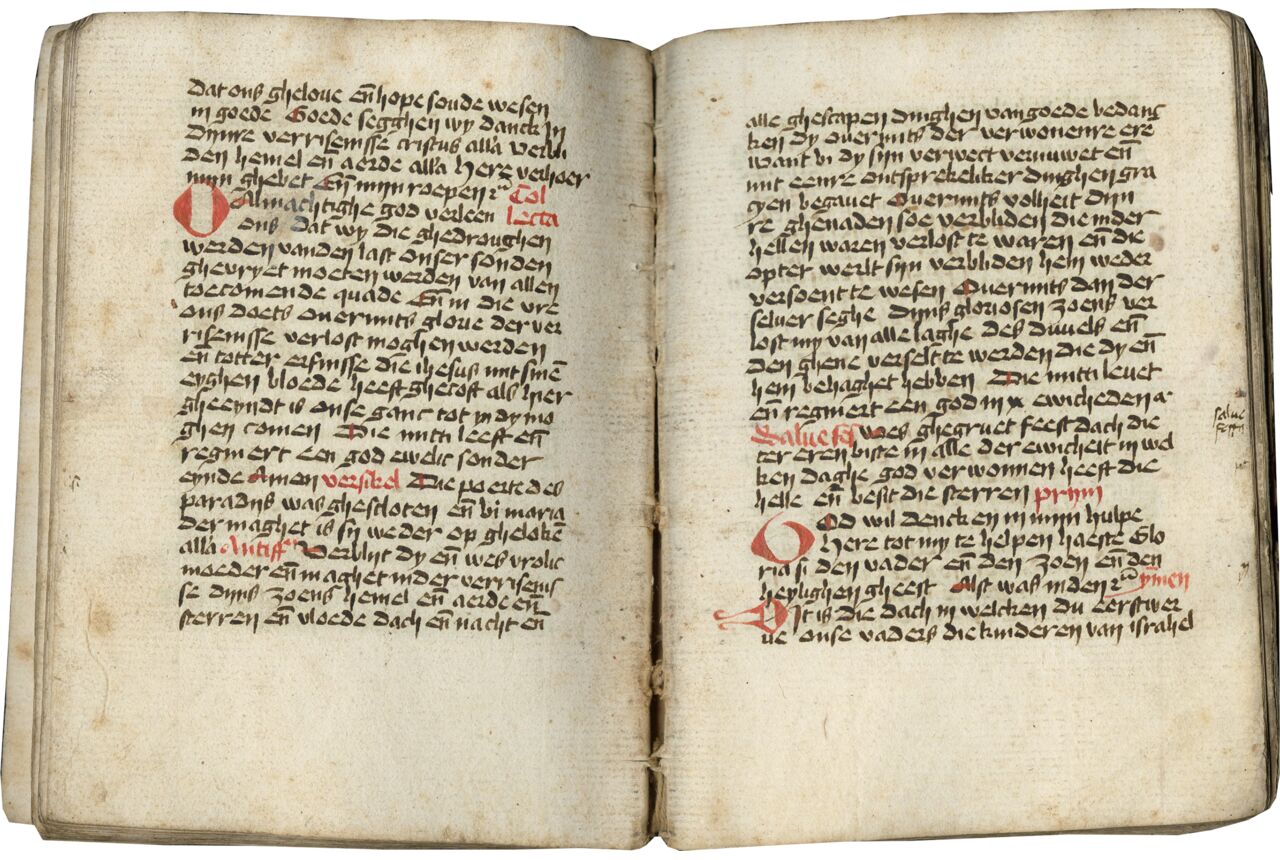 Dat ons gheloue en̄ hope soude wesen
in goede Goede segghen wy danck in
Dynre verrisenisse cristus alla̅ verbli
den hemel en̄ aerde alla̅ Here verhoer
mijn ghebet En̄ mijn roepen Col
O Almachtighe god verleen lecta
ons Dat wy die ghedroughen
werden vanden last onser sonden
ghevryet moeten werden van allen
toecomende quade En̄ in die vre
ons doets ouermits glorie der ver
risenisse verlost moghen werden
en̄ totter erfnisse die ihesus mit sinē
eyghen bloede heeft ghecoft als hier
gheeyndt is onse ganc tot in dy mo
ghen comen Die mitti leeft en̄
regniert een god ewelic sonder
eynde Amen versikel Die poerte des
paradijs was ghesloten en̄ bi maria
der maghet is si weder op ghelokē
alla̅ Antiffᵃ Verblijt dy en̄ wes vrolic
moeder en̄ maghet inder verrisenis
se dijns zoens hemel en̄ aerde en̄
sterren en̄ vloede dach en̄ nacht en̄
alle ghescapen dinghen van goede bedanc
ken dy ouermits der verwonenre ere
want bi dy sijn verwect vernuwet en̄
mit eenre ontsprekeliker dinghen gra
cyen begauet Ouermits volheit dijn
re ghenaden soe verbliden die inder
hellen waren verlost te waren en̄ die
opter werlt sijn verbliden hem weder
versoent te wesen Ouermits dan der
seluer seghe dijns gloriosen zoens ver
lost my van alle laghe des duuels en̄
den ghene verselt te werden die dy en̄
hem behaghet hebben Die mitti leuet
en̄ regniert een god in x ewicheden a
Salue fes wes ghegruet feest dach die
ter eren biste in alle der ewicheit in wel
ken daghe god verwonnen heeft die
helle en̄ besit die sterren prijm
salue
festa
God wil dencken in mijn hulpe
Here tot my te helpen haeste Glo
ria si den vader en̄ den zoen en̄ den
heylighen gheest Alst was inden ymen
Dit is die dach in welcken du eerstwer
ue onse vaders die kinderen van israhel